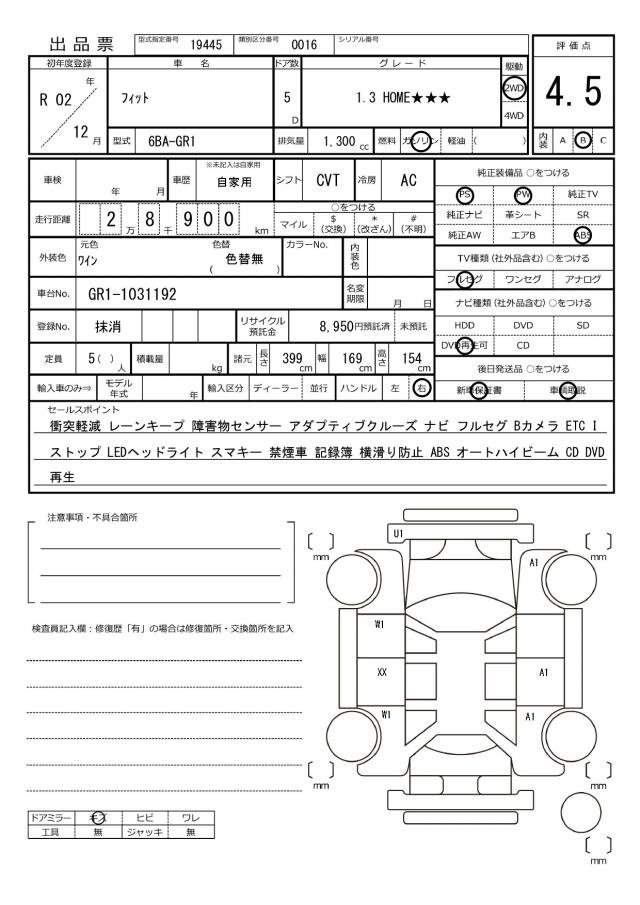 出品票 型式指定番号 19445 類別区分番号 0016 シリアル番号
評価点
4.5
内装 A B C
初年度登録 車名 ドア数 グレード 駆動
R 02 年 12 月 フィット 5 D 1.3 HOME★★★ 2WD
4WD
型式 6BA-GR1 排気量 1,300 cc 燃料 ガソリン 軽油 ( )
車検 年 月 車歴 ※未記入は自家用 自家用 シフト CVT 冷房 AC
走行距離 2 万 8 千 900 km
○をつける
マイル $(交換) *(改ざん) #(不明)
外装色 元色 ワイン 色替 ( 色替無 ) カラーNo. 内装色
車台No. GR1-1031192 名変期限 月 日
登録No. 抹消 リサイクル預託金 8,950円預託済 未預託
定員 5( )人 積載量 kg 諸元 長さ 399 cm 幅 169 cm 高さ 154 cm
輸入車のみ⇒ モデル年式 年 輸入区分 ディーラー・並行 ハンドル 左 右
純正装備品 ○をつける
PS PW 純正TV
純正ナビ 革シート SR
純正AW エアB ABS
TV種類(社外品含む)○をつける
フルセグ ワンセグ アナログ
ナビ種類(社外品含む)○をつける
HDD DVD SD
DVD再生可 CD
後日発送品 ○をつける
新車保証書 車輌取説
セールスポイント
衝突軽減 レーンキープ 障害物センサー アダプティブクルーズ ナビ フルセグ Bカメラ ETC I
ストップ LEDヘッドライト スマキー 禁煙車 記録簿 横滑り防止 ABS オートハイビーム CD DVD
再生
注意事項・不具合箇所
検査員記入欄:修復歴「有」の場合は修復箇所・交換箇所を記入
ドアミラー キズ ヒビ ワレ
工具 無 ジャッキ 無
U1
[ ] mm
[ ] mm
A1
W1
XX
A1
W1
A1
[ ] mm
[ ] mm
[ ] mm